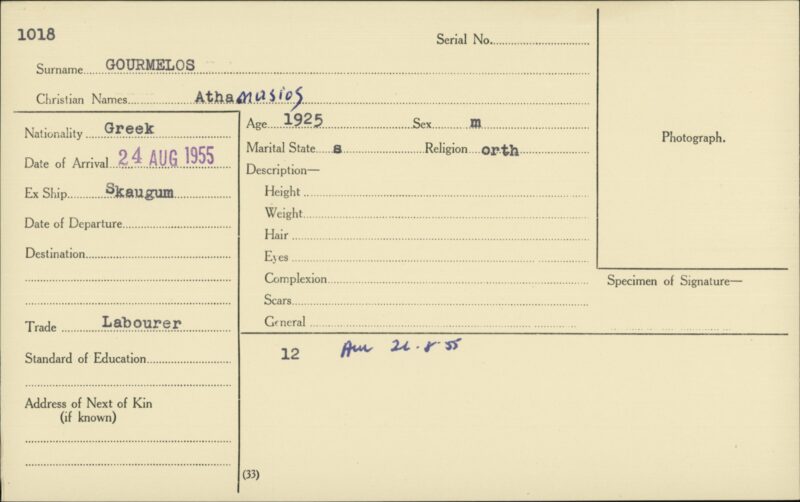 1018
Serial No.
Surname GOURMELOS
Christian Names Athanasios
Nationality Greek
Date of Arrival 24 AUG 1955
Ex Ship Skaugum
Date of Departure
Destination
Trade Labourer
Standard of Education
Address of Next of Kin
(if known)
Age 1925 Sex m
Marital State s Religion orth
Description—
Height
Weight
Hair
Eyes
Complexion
Scars
General
12 8-55
(33)
Photograph.
Specimen of Signature—